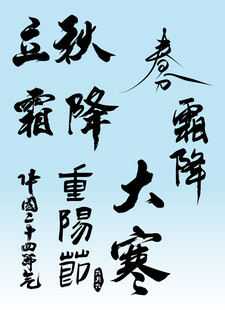 立秋
春分
霜降
霜降
大寒
重陽節
中國二十四節气